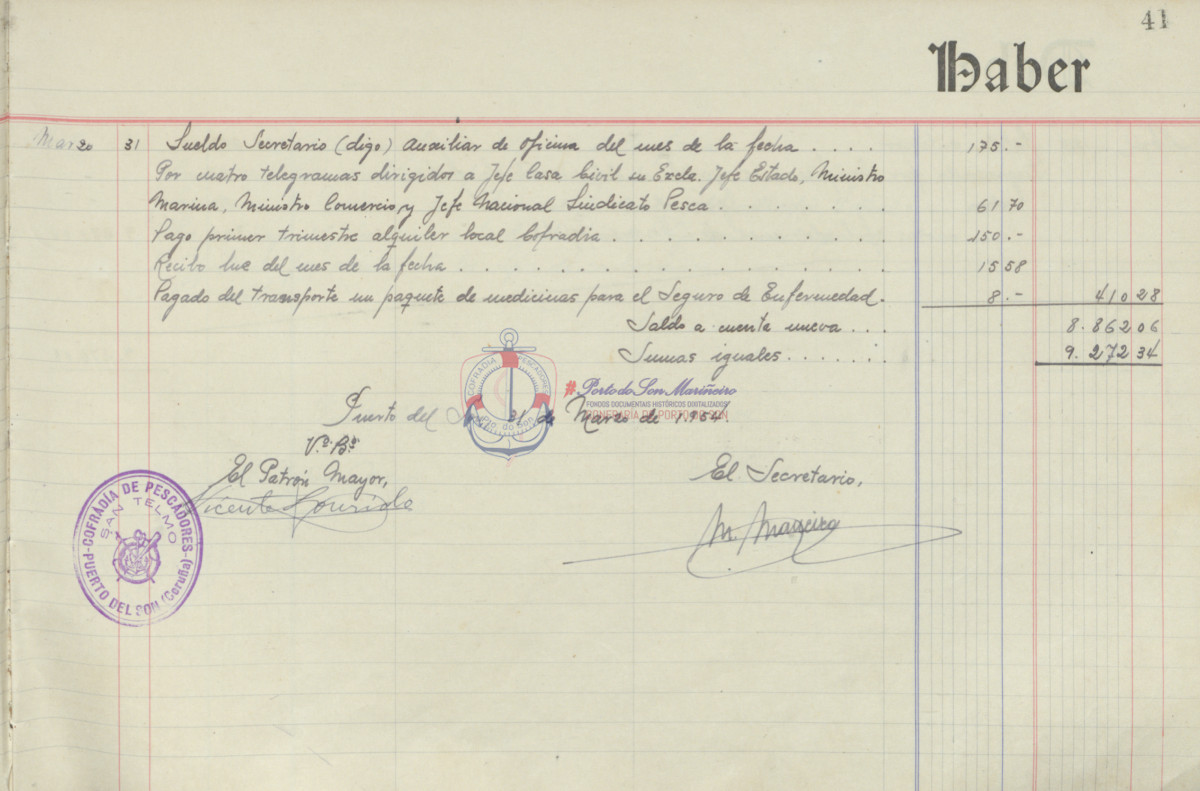 41
Haber
Marzo 31 Sueldo Secretario (digo) Auxiliar de Oficina del mes de la fecha . . . . 175.-
Por cuatro telegramas dirigidos a Jefe Casa Civil su Excla. Jefe Estado, Ministro
Marina, Ministro Comercio, y Jefe Nacional Sindicato Pesca . . . . . . . 61 70
Pago primer trimestre alquiler local Cofradia . . . . . . . . . . 150.-
Recibo luz del mes de la fecha . . . . . . . . . . . . . . . . 15 58
Pagado del transporte un paquete de medicinas para el Seguro de Enfermedad. 8.- 410 28
Saldo a cuenta nueva . . . 8.862 06
Sumas iguales . . . . . . 9.272 34
COFRADIA PESCADORES
Pto. do Son
#Porto do Son Mariñeiro
FONDOS DOCUMENTAIS HISTÓRICOS DIXITALIZADOS
CONFRARÍA DE PORTO DO SON
Puerto del Son 31 de Marzo de 1.954
Vº Bº
El Patrón Mayor,
El Secretario,
Vicente Louridо
M. Maneiro
COFRADIA DE PESCADORES
SAN TELMO
PUERTO DEL SON (Coruña)